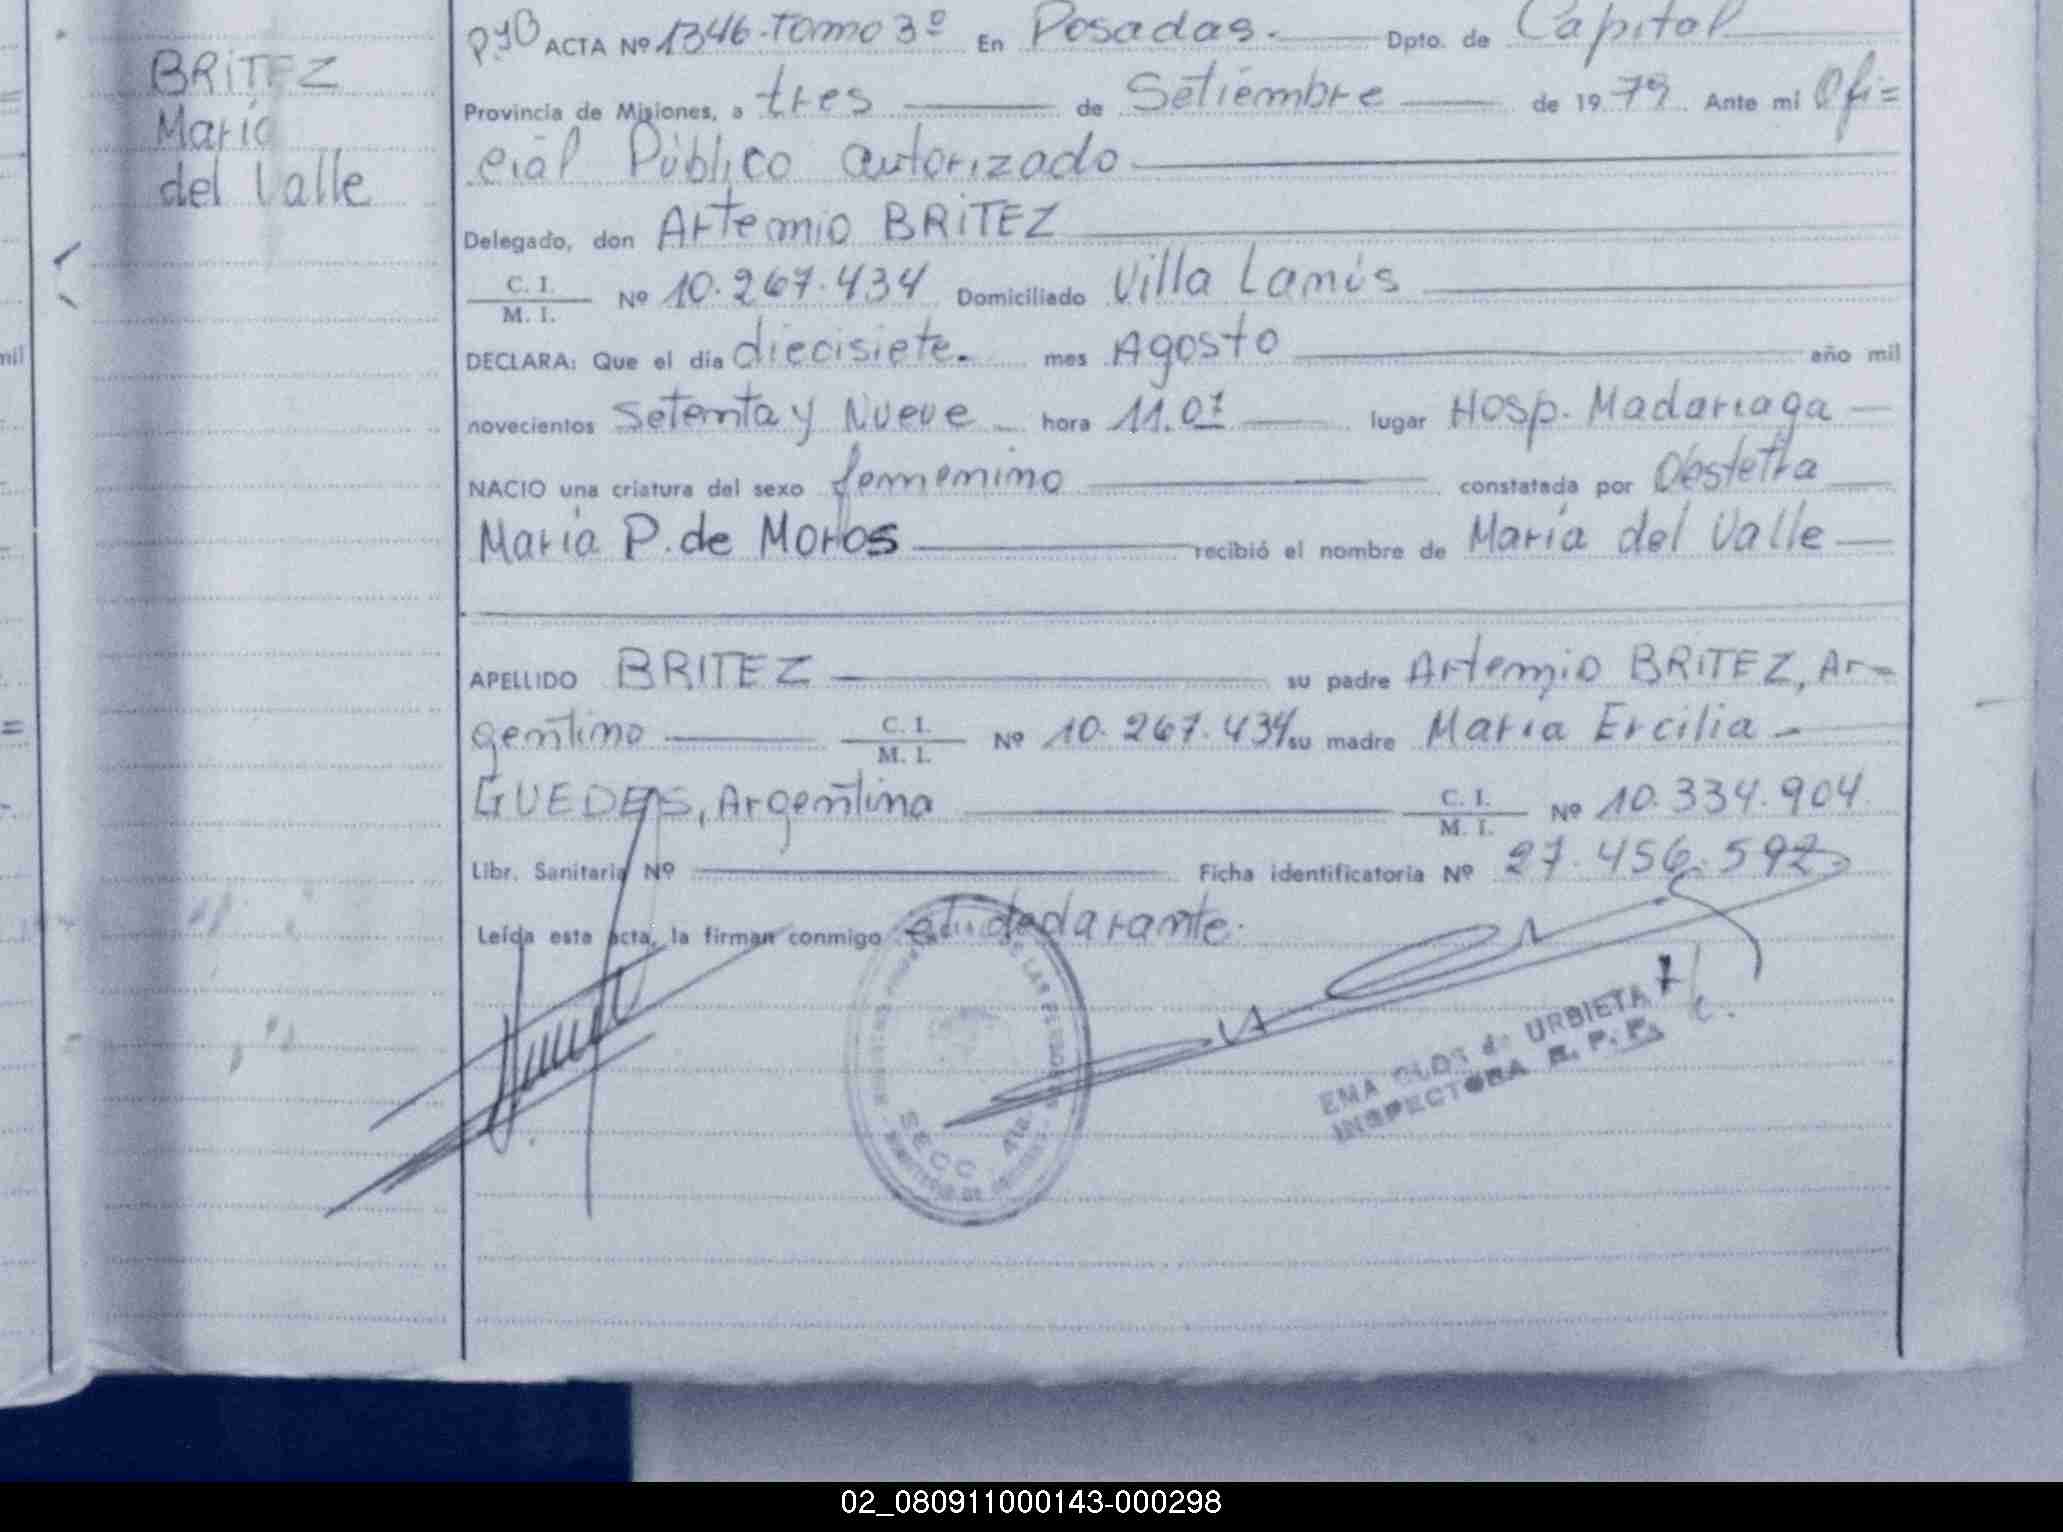 BRITEZ
María
del Valle
mil
PyO ACTA Nº 1346-Tomo 3º En Posadas.- Dpto. de Capital
Provincia de Misiones, a tres de Setiembre de 1979 Ante mi Ofi=
cial Público autorizado
Delegado, don Artemio BRITEZ
C. I. / M. I. Nº 10.267.434 Domiciliado Villa Lanús
DECLARA: Que el día diecisiete. mes Agosto año mil
novecientos Setenta y Nueve hora 11.07 lugar Hosp. Madariaga
NACIO una criatura del sexo femenino constatada por Obstetra
María P. de Morlos recibió el nombre de María del Valle
APELLIDO BRITEZ su padre Artemio BRITEZ, Ar-
gentino C. I. / M. I. Nº 10.267.434 su madre María Ercilia
GUEDES, Argentina C. I. / M. I. Nº 10.334.904
Libr. Sanitaria Nº Ficha identificatoria Nº 27.456.592
Leída esta acta, la firman conmigo el declarante.
DE LAS PERSONAS
SECC 4ta.
EMA GLOR de URBIETA
INSPECTORA R. P. P.
02_080911000143-000298